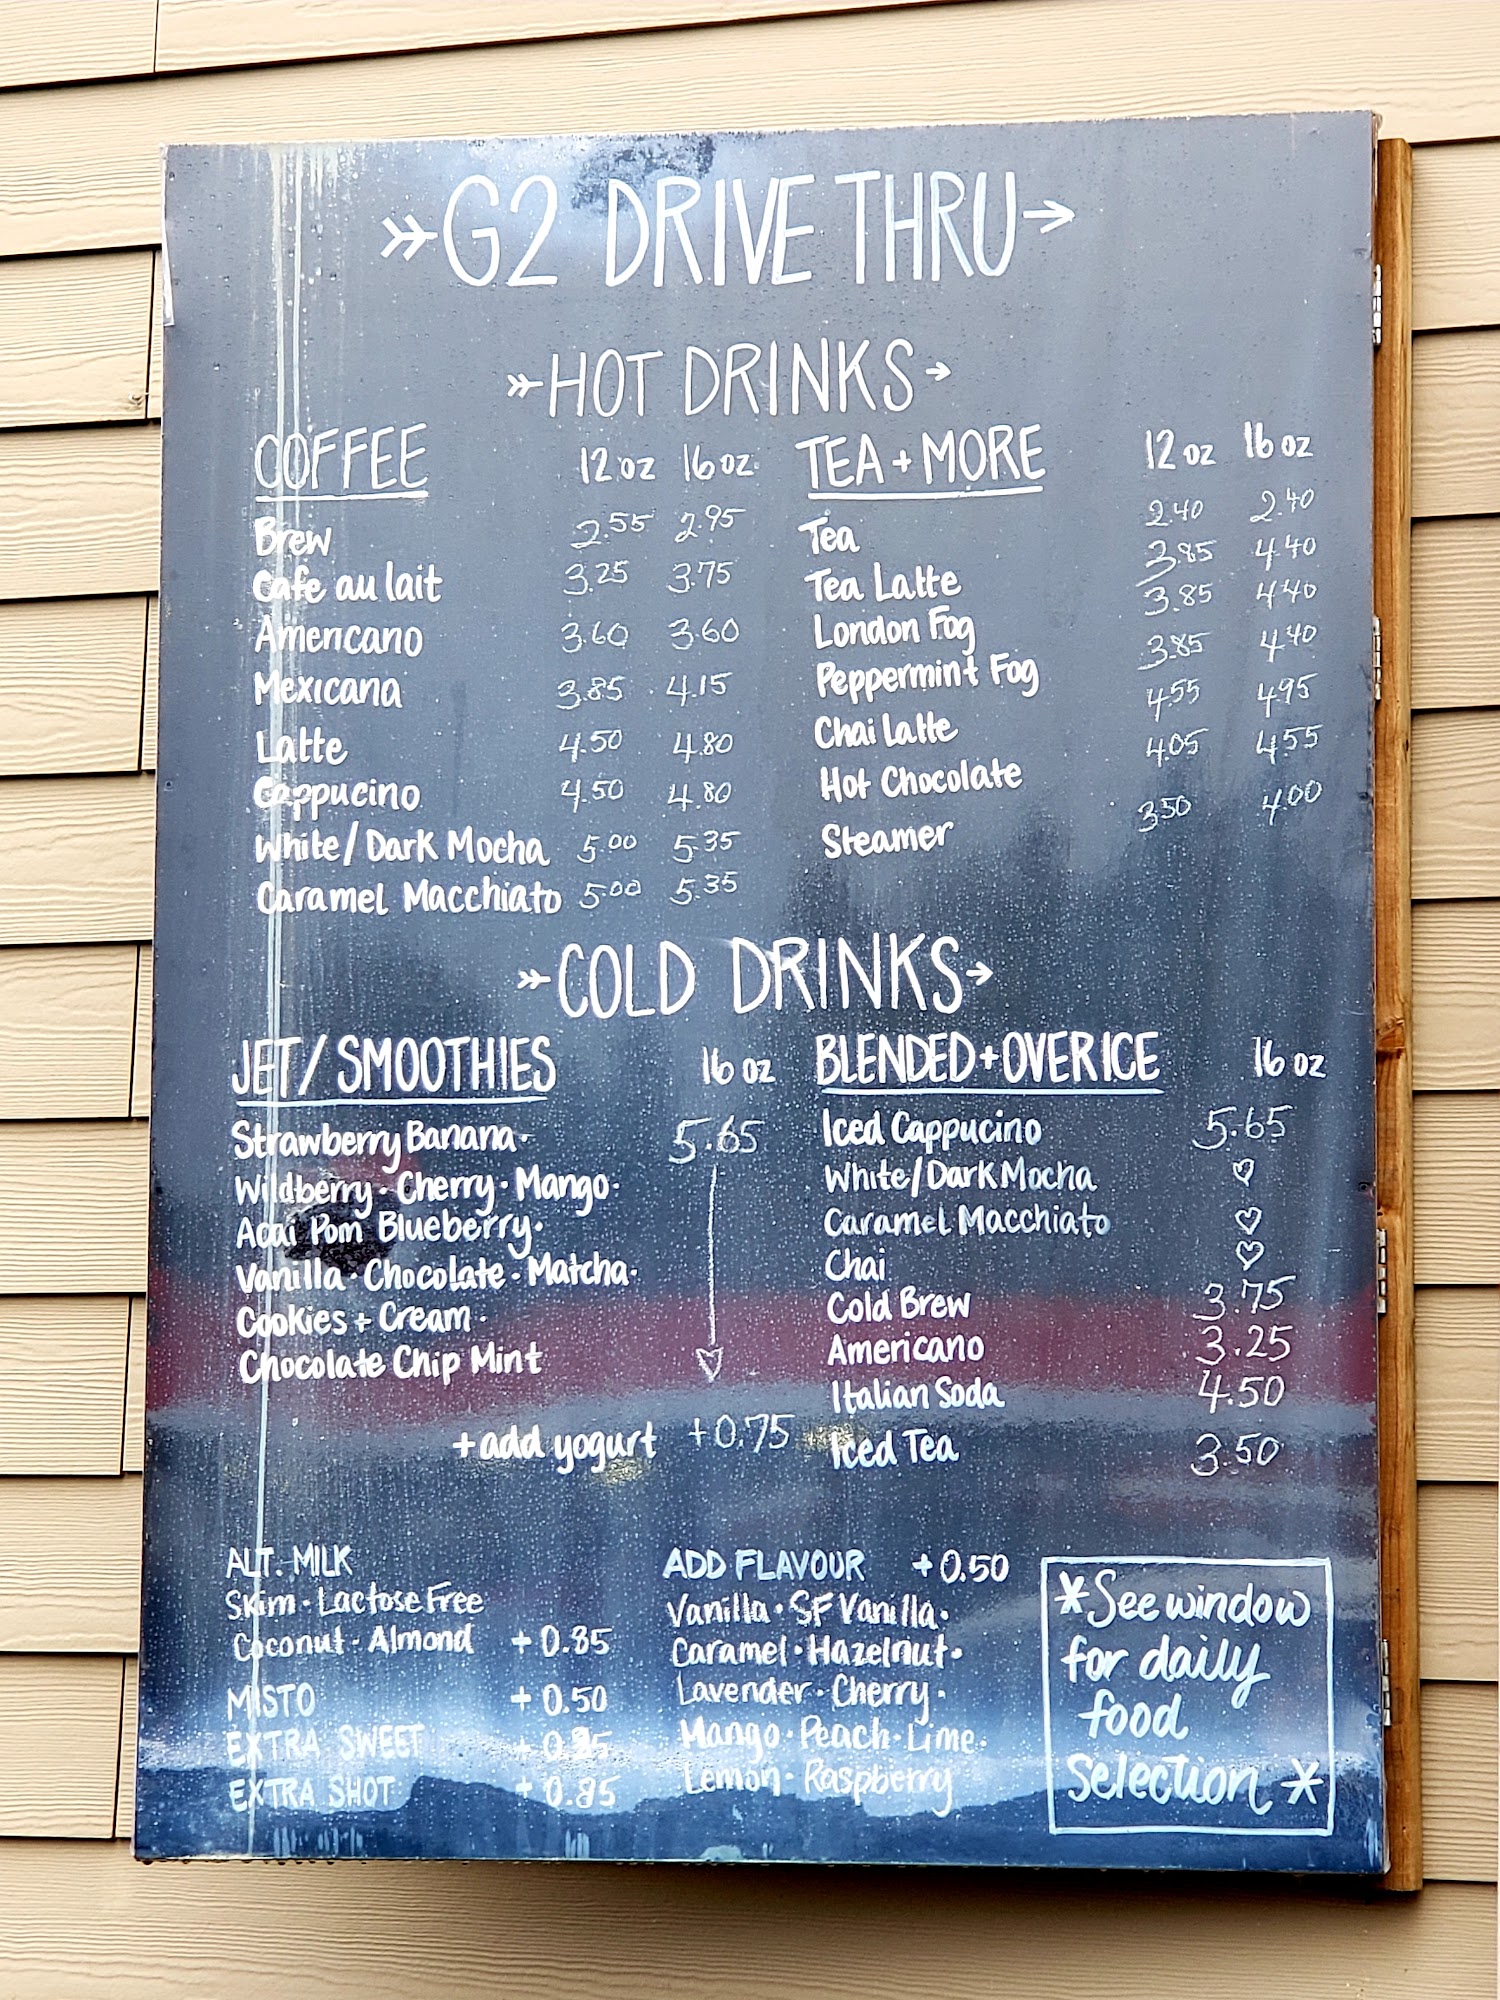 G2 DRIVE THRU
HOT DRINKS
COFFEE 12 oz 16 oz
Brew 2.55 2.95
Cafe au lait 3.25 3.75
Americano 3.60 3.60
Mexicana 3.85 4.15
Latte 4.50 4.80
Cappucino 4.50 4.80
White/Dark Mocha 5.00 5.35
Caramel Macchiato 5.00 5.35
TEA + MORE 12 oz 16 oz
Tea 2.40 2.40
Tea Latte 3.85 4.40
London Fog 3.85 4.40
Peppermint Fog 3.85 4.40
Chai Latte 4.55 4.95
Hot Chocolate 4.05 4.55
Steamer 3.50 4.00
COLD DRINKS
JET/SMOOTHIES 16 oz
Strawberry Banana · 5.65
Wildberry · Cherry · Mango ·
Acai Pom Blueberry ·
Vanilla · Chocolate · Matcha ·
Cookies + Cream ·
Chocolate Chip Mint
+ add yogurt +0.75
BLENDED + OVER ICE 16 oz
Iced Cappucino 5.65
White/Dark Mocha ♡
Caramel Macchiato ♡
Chai ♡
Cold Brew 3.75
Americano 3.25
Italian Soda 4.50
Iced Tea 3.50
ALT. MILK
Skim · Lactose Free
Coconut · Almond +0.85
MISTO +0.50
EXTRA SWEET
EXTRA SHOT +0.85
ADD FLAVOUR +0.50
Vanilla · SF Vanilla ·
Caramel · Hazelnut ·
Lavender · Cherry ·
Mango · Peach · Lime ·
Lemon · Raspberry
*See window
for daily
food
selection *